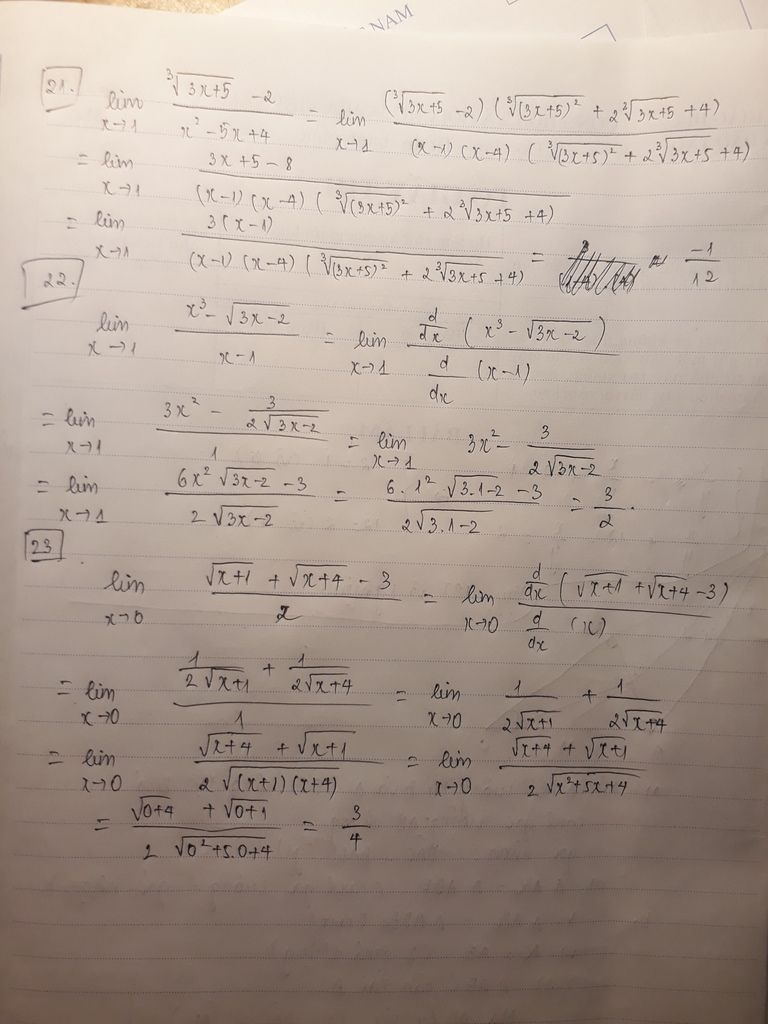 NAM
21. lim x→1 (∛(3x+5) - 2)/(x² - 5x + 4) = lim x→1 ((∛(3x+5) - 2)(∛(3x+5)² + 2∛(3x+5) + 4))/((x-1)(x-4)(∛(3x+5)² + 2∛(3x+5) + 4))
= lim x→1 (3x + 5 - 8)/((x-1)(x-4)(∛(3x+5)² + 2∛(3x+5) + 4))
= lim x→1 3(x-1)/((x-1)(x-4)(∛(3x+5)² + 2∛(3x+5) + 4)) = = -1/12
22.
lim x→1 (x³ - √(3x-2))/(x-1) = lim x→1 (d/dx (x³ - √(3x-2)))/(d/dx (x-1))
= lim x→1 (3x² - 3/(2√(3x-2)))/1 = lim x→1 3x² - 3/(2√(3x-2))
= lim x→1 (6x²√(3x-2) - 3)/(2√(3x-2)) = (6.1²√(3.1-2) - 3)/(2√(3.1-2)) = 3/2.
23
lim x→0 (√(x+1) + √(x+4) - 3)/x = lim x→0 (d/dx (√(x+1) + √(x+4) - 3))/(d/dx (x))
= lim x→0 (1/(2√(x+1)) + 1/(2√(x+4)))/1 = lim x→0 1/(2√(x+1)) + 1/(2√(x+4))
= lim x→0 (√(x+4) + √(x+1))/(2√((x+1)(x+4))) = lim x→0 (√(x+4) + √(x+1))/(2√(x²+5x+4))
= (√(0+4) + √(0+1))/(2√(0²+5.0+4)) = 3/4